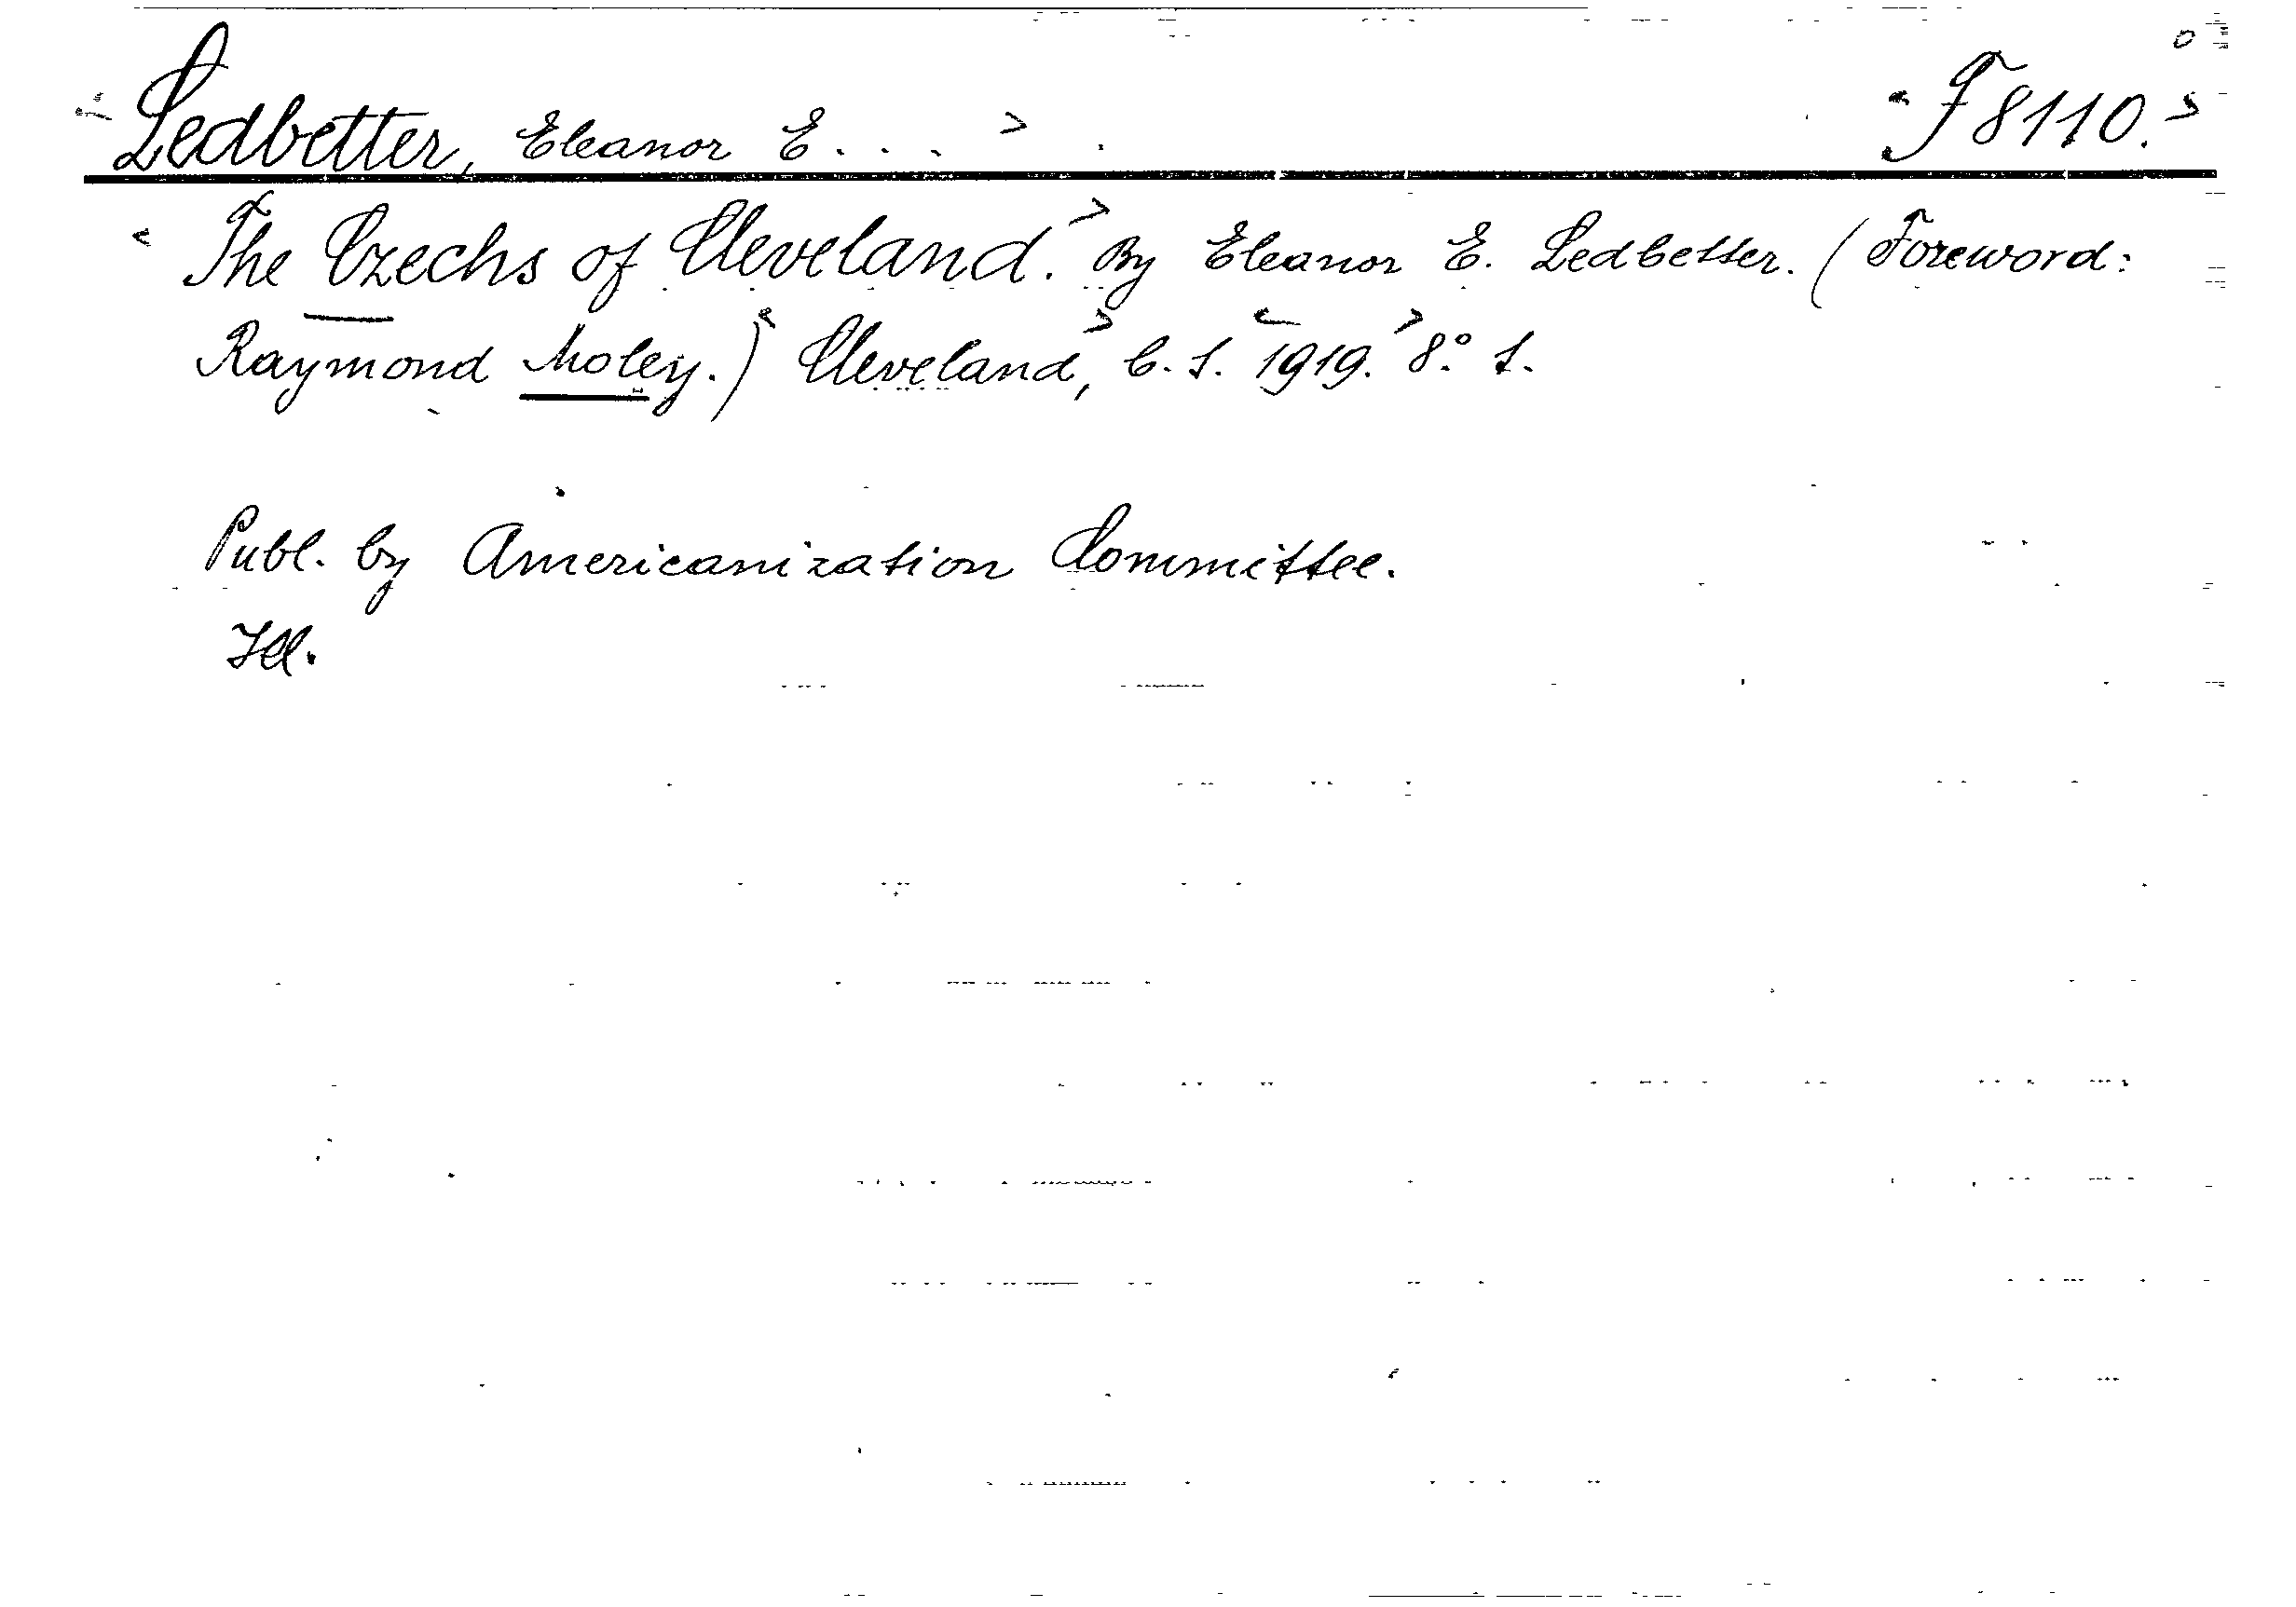 Ledbetter, Eleanor E... > <F 8110.>
<The Czechs of Cleveland.> By Eleanor E. Ledbetter. (Foreword:
Raymond Moley.) <Cleveland,> b. t. <1919.> 8° t.
Publ. by Americanization Committee.
Ill.